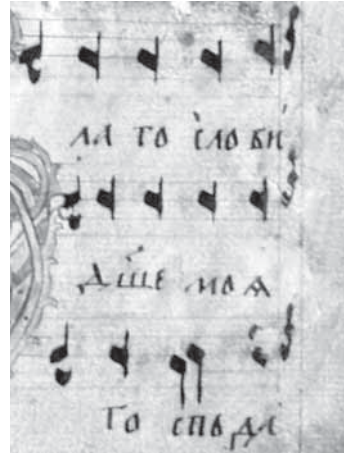 ла го слови
дше моѧ
го спѡда